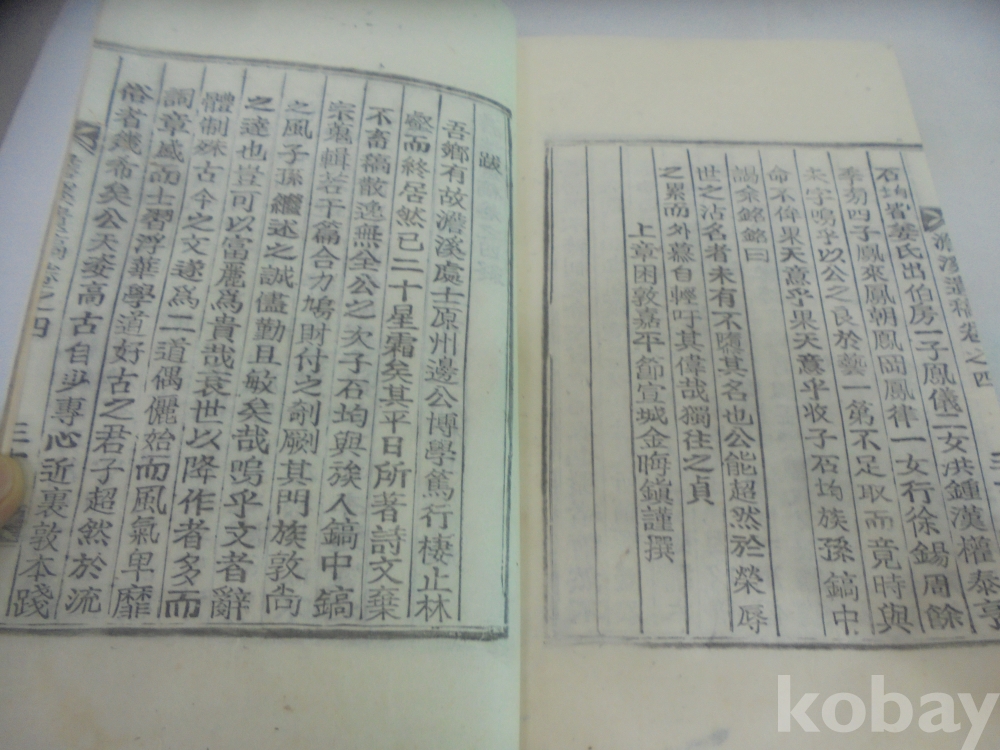 澹溪遺稿卷之四
石均皆姜氏出伯房一子鳳儀二女洪鍾漢權泰亨
季房四子鳳來鳳朝鳳岡鳳律一女行徐錫周餘
未字嗚乎以公之良於藝一第不足取而竟時與
命不侔果天意乎果天意乎收子石均族孫鎬中
謁余銘銘曰
世之沾名者未有不墮其名也公能超然於榮辱
之累而外慕自輕吁其偉哉獨往之貞
上章困敦嘉平節宣城金晦鎭謹撰
跋
吾鄉有故澹溪處士原州邊公博學篤行棲止林
壑而終居然已二十星霜矣其平日所著詩文棄
不畜稿散逸無全公之次子石均與族人鎬中鎬
宗蒐輯若干篇合力鳩財付之剞劂其門族敦尙
之風子孫繼述之誠儘勤且敏矣哉嗚乎文者辭
之達也豈可以富麗爲貴哉衰世以降作者多而
體制殊古今之文遂爲二道偶儷始而風氣卑靡
詞章盛而士習浮華學道好古之君子超然於流
俗者幾希矣公天姿高古自少專心近裏敦本踐
之四